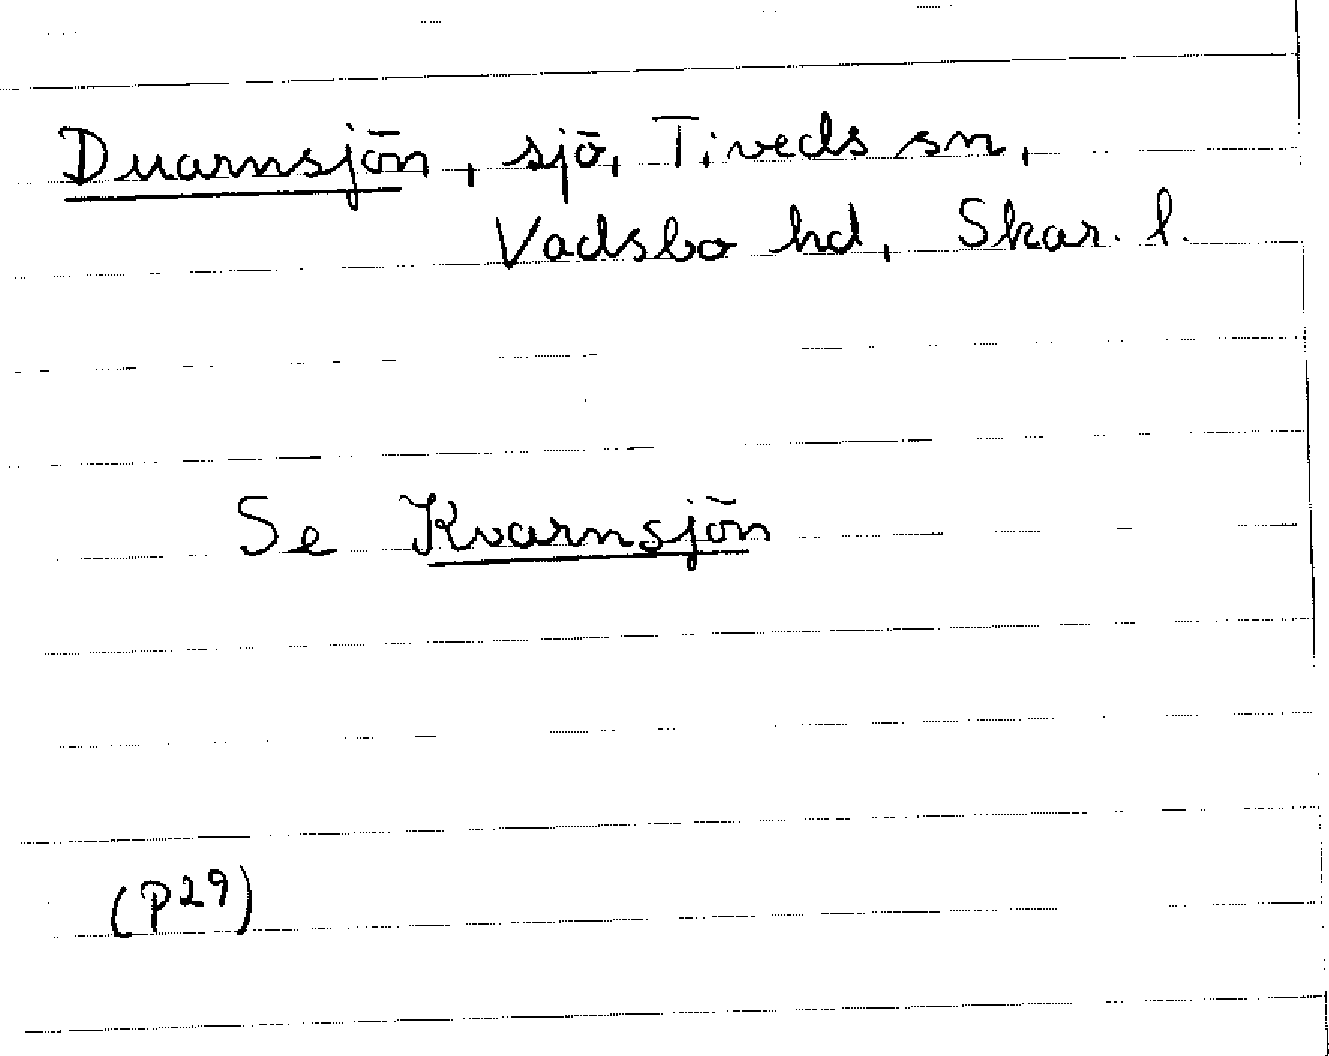 Duarnsjön, sjö, Tiveds sn,
Vadsbo hd, Skar. l.
Se Kvarnsjön
(P29)